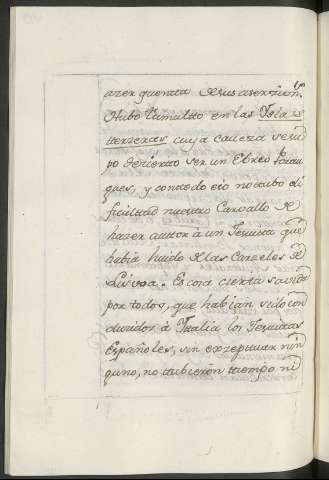 azer querata de sus aserzion.s
Hubo tumulto en las Islas
terzeras, cuya caveza se su
po de zierto ser un Ebreo Portu
gues, y con todo eso no tubo di
ficultad nuestro Carvallo de
hazer autor à un Jesuita que
habia huido de las Carzeles de
Lisvoa. Es cosa cierta savida
por todos, que habian sido con
duzidos à Ithalia los Jesuitas
Españoles, sin exzeptuar nin
guno, no tubieron tiempo ni